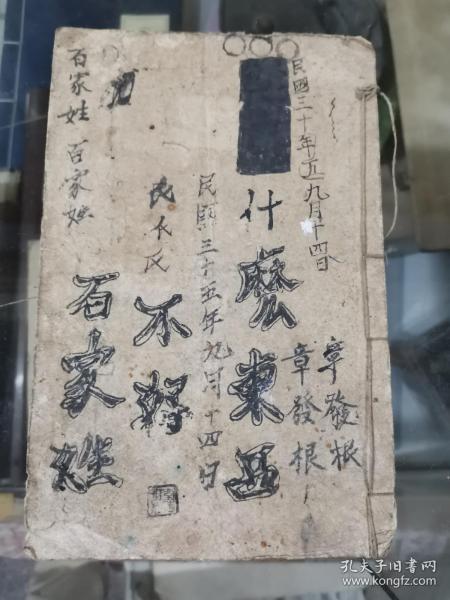 民國三十年五九月十四日
章發根
章發根
什麽東西
民縣三十五年九月十四日
不好
民不民
百家姓
百家姓 百家姓
孔夫子旧书网
www.kongfz.com